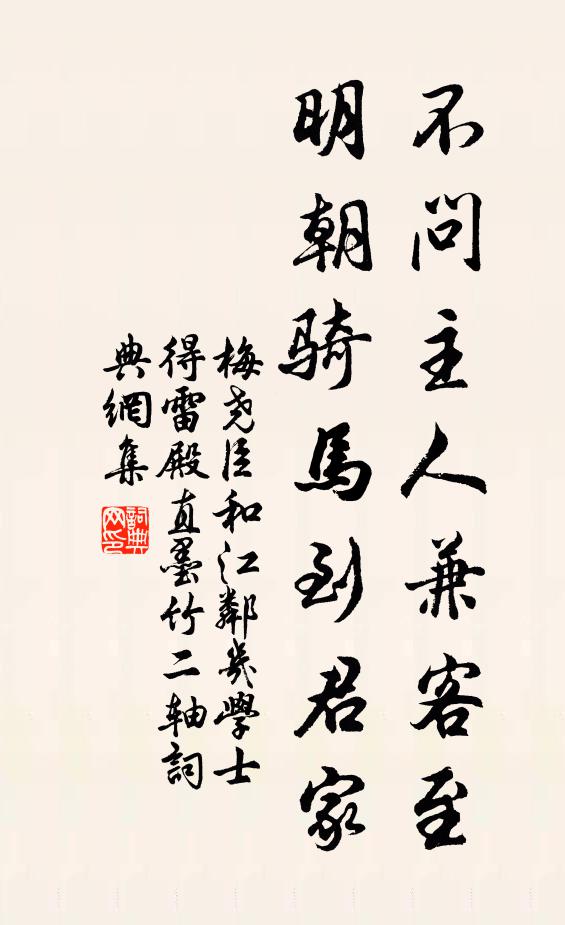 不問主人兼客至
明朝騎馬到君家
梅尧臣和江鄰幾學士
得雷殿直墨竹二轴詞
典網集
詞典
网印